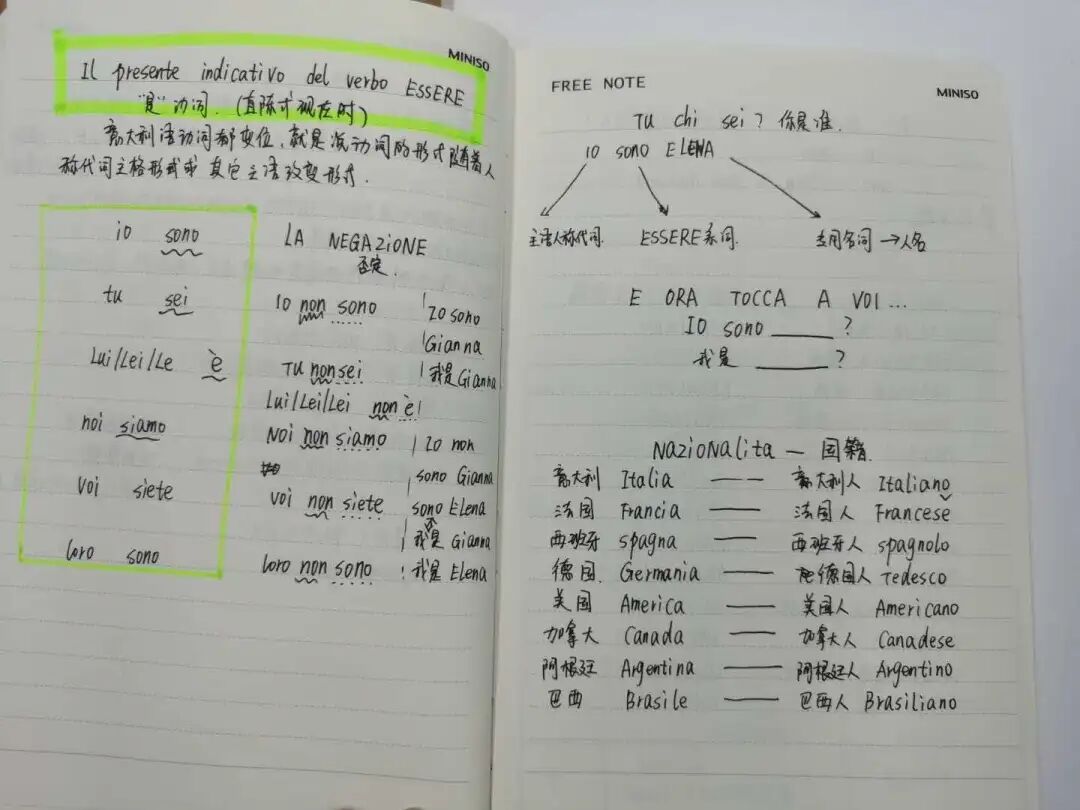 MINISO
Il presente indicativo del verbo ESSERE
"是"动词.(直陈式现在时)
意大利语动词都变位,就是说动词的形式随着人
称代词主格形式或其它主语改变形式.
io sono
tu sei
Lui/Lei/Le è
noi siamo
Voi siete
loro sono
LA NEGAZIONE
否定.
Io non sono
Tu non sei
Lui/Lei/Lei non è
Noi non siamo
Voi non siete
loro non sono
Io sono
Gianna
我是Gianna
Io non
sono Gianna
sono Elena
我不是Gianna
我是Elena
FREE NOTE
MINISO
Tu chi sei? 你是谁.
Io sono ELENA
主语人称代词. ESSERE系词. 专用名词→人名
E ORA TOCCA A VOI...
IO sono ______ ?
我是 ______ ?
NazioNalita — 国籍.
意大利 Italia —— 意大利人 Italiano
法国 Francia —— 法国人 Francese
西班牙 spagna —— 西班牙人 spagnolo
德国. Germania —— 德国人 Tedesco
美国 America —— 美国人 Americano
加拿大 Canada —— 加拿大人 Canadese
阿根廷 Argentina —— 阿根廷人 Argentino
巴西 Brasile —— 巴西人 Brasiliano